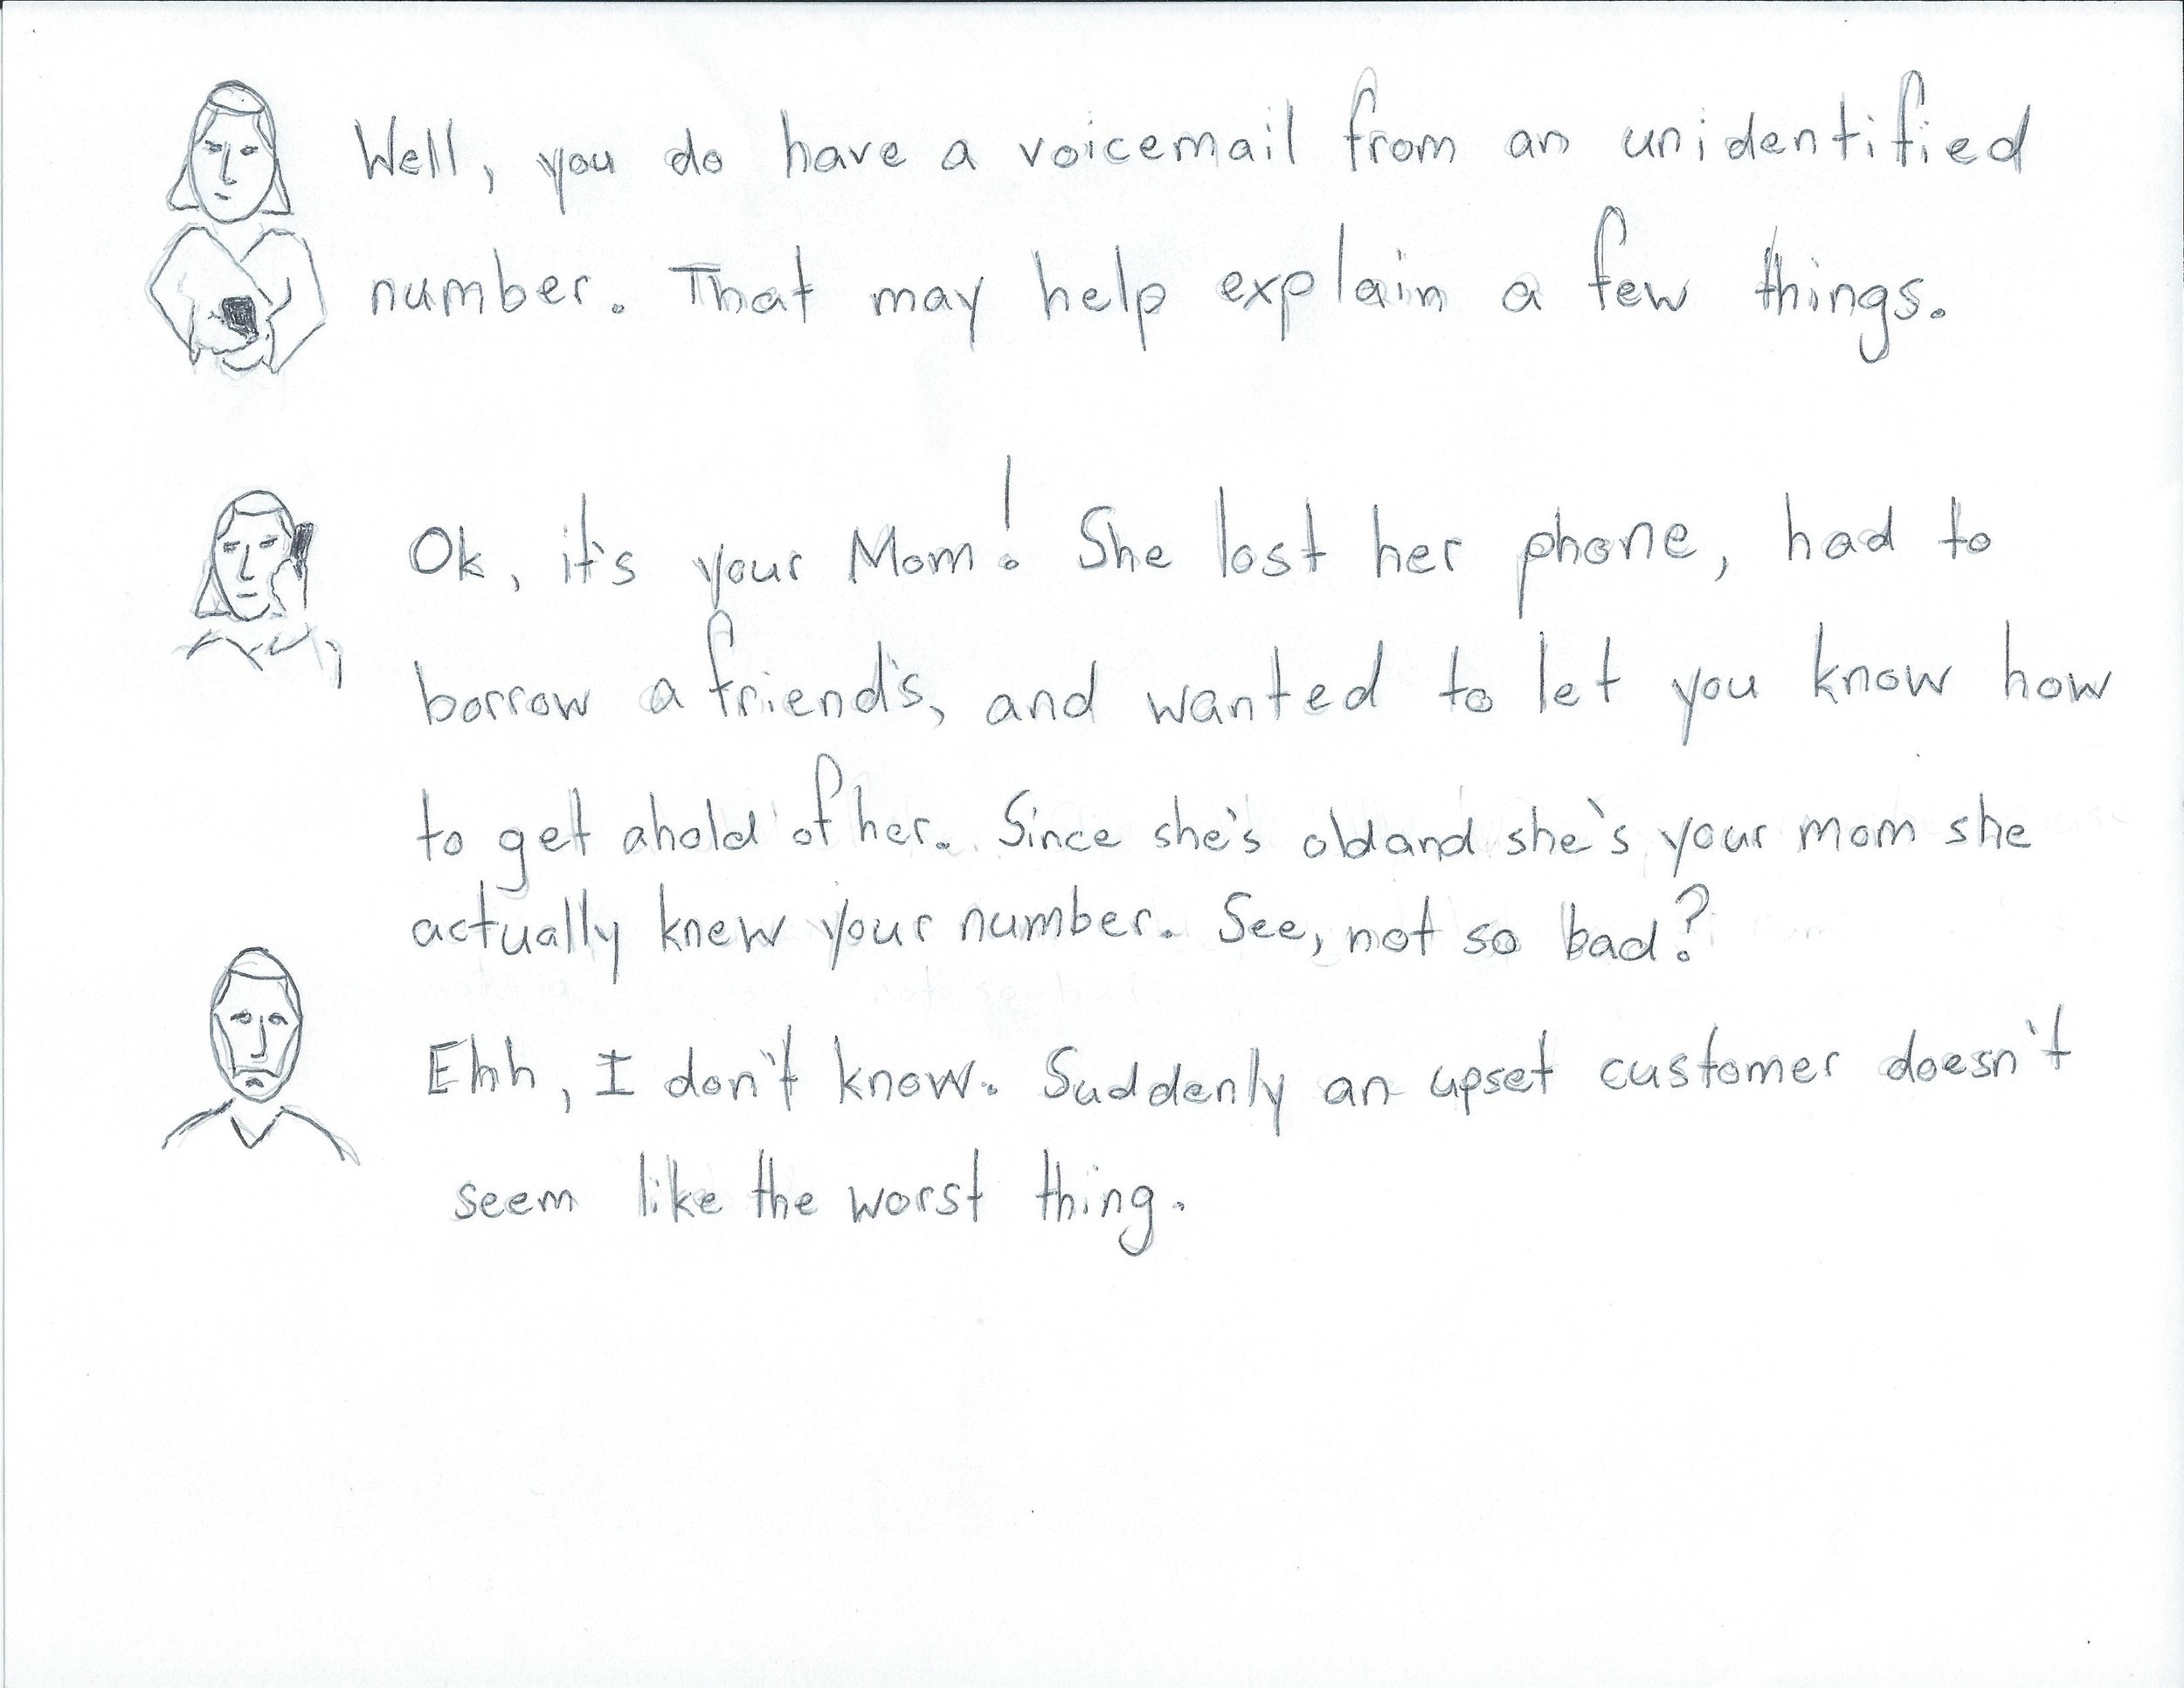 Well, you do have a voicemail from an unidentified
number. That may help explain a few things.
Ok, it's your Mom! She lost her phone, had to
borrow a friend's, and wanted to let you know how
to get ahold of her. Since she's old and she's your mom she
actually knew your number. See, not so bad?
Ehh, I don't know. Suddenly an upset customer doesn't
seem like the worst thing.